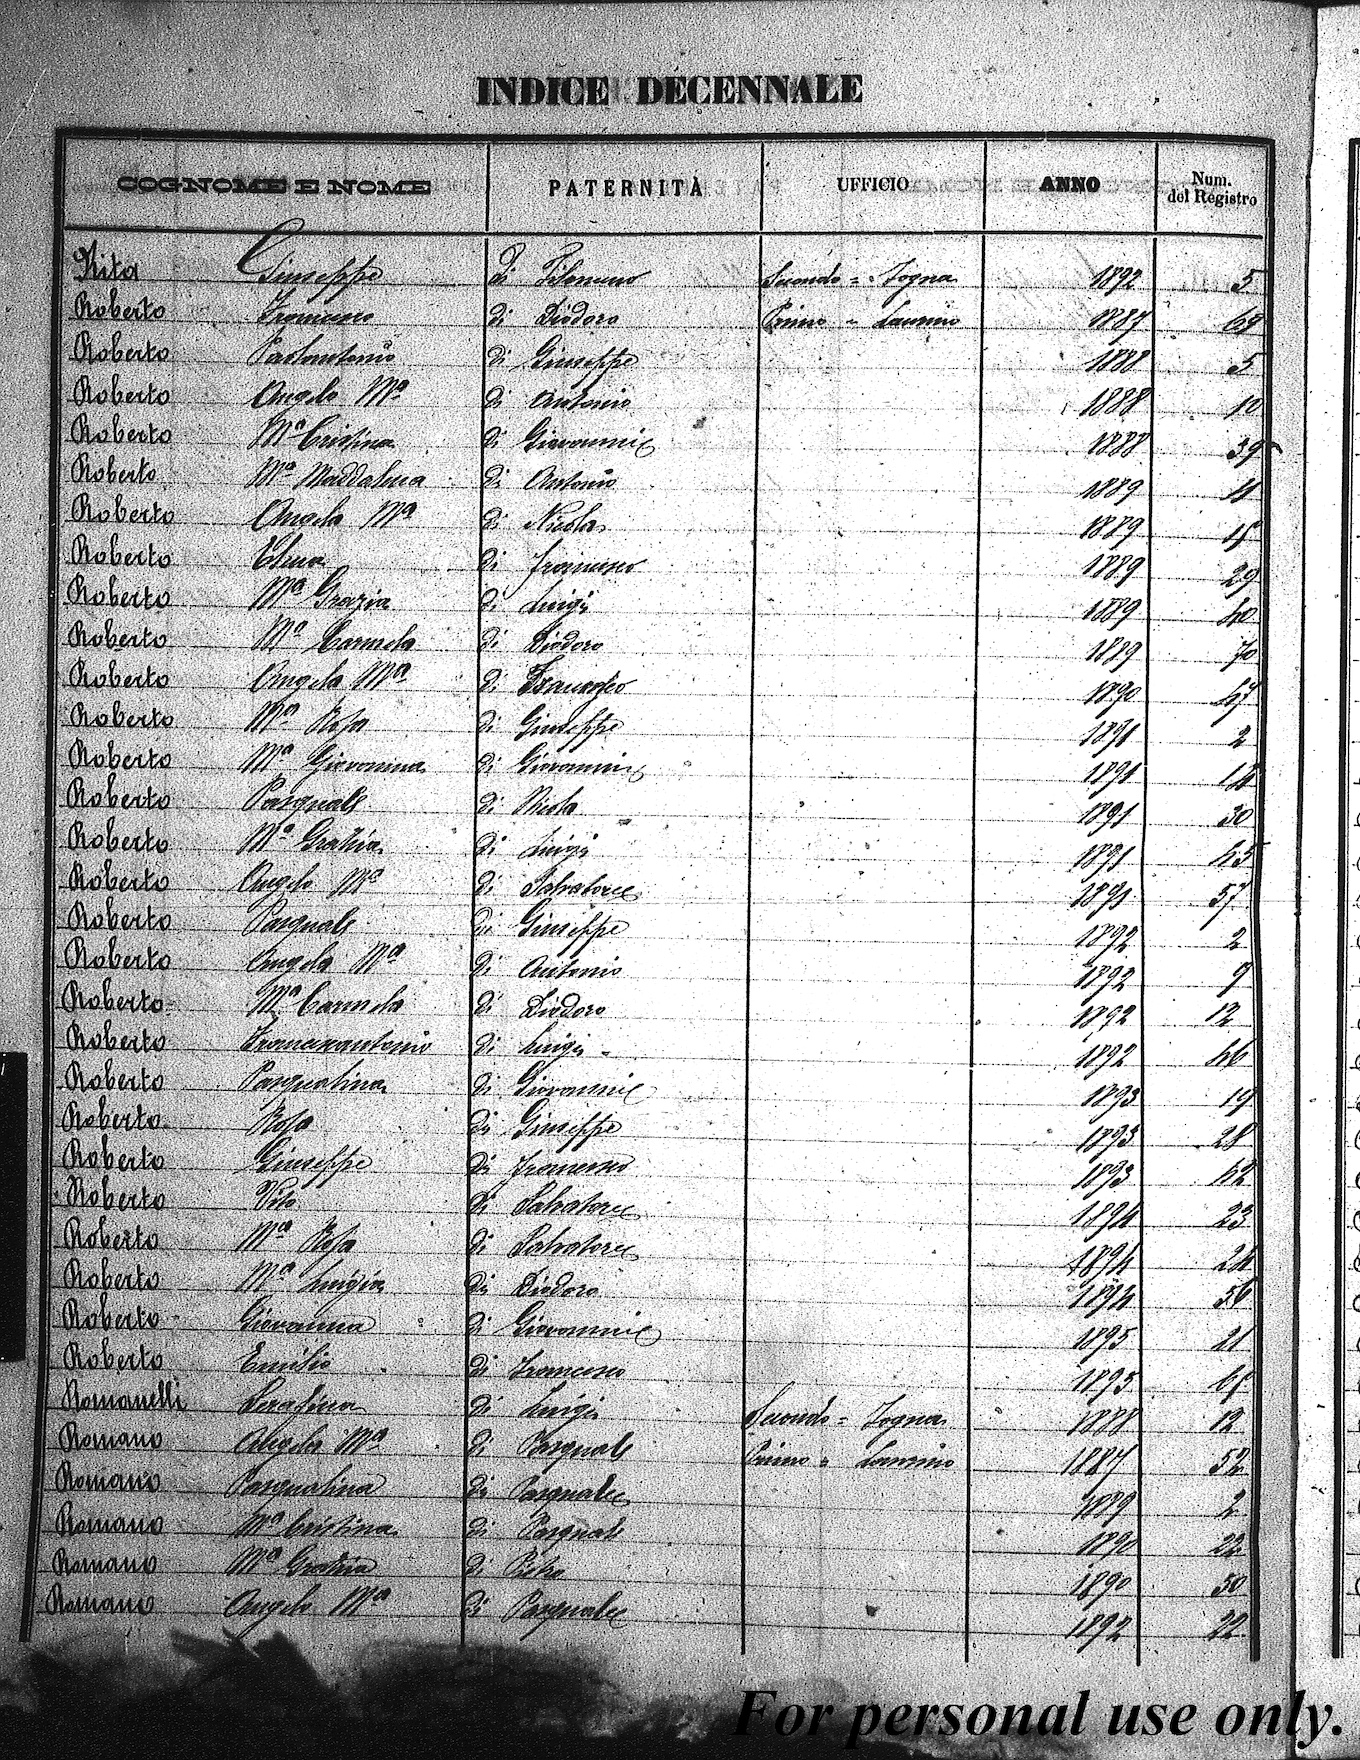 INDICE DECENNALE
COGNOME E NOME PATERNITÀ UFFICIO ANNO Num. del Registro
Rita Giuseppe di Filomeno Secondo = Fogna 1892 5
Roberto Francesco di Diodoro Primo = Laurino 1887 69
Roberto Paolantonio di Giuseppe 1888 5
Roberto Angelo Mª di Antonio 1888 10
Roberto Mª Cristina di Giovanni 1888 39
Roberto Mª Maddalena di Antonio 1889 11
Roberto Angela Mª di Nicola 1889 15
Roberto Elena di Francesco 1889 29
Roberto Mª Grazia di Luigi 1889 40
Roberto Mª Carmela di Diodoro 1889 70
Roberto Angela Mª di Francesco 1890 47
Roberto Mª Rosa di Giuseppe 1891 2
Roberto Mª Giovanna di Giovanni 1891 14
Roberto Pasquale di Nicola 1891 30
Roberto Mª Grazia di Luigi 1891 45
Roberto Angelo Mª di Salvatore 1891 57
Roberto Pasquale di Giuseppe 1892 2
Roberto Angela Mª di Antonio 1892 7
Roberto Mª Carmela di Diodoro 1892 12
Roberto Francescantonio di Luigi 1892 46
Roberto Pasqualina di Giovanni 1893 19
Roberto Rosa di Giuseppe 1893 28
Roberto Giuseppe di Francesco 1893 42
Roberto Vito di Salvatore 1894 23
Roberto Mª Rosa di Salvatore 1894 24
Roberto Mª Luigia di Diodoro 1894 56
Roberto Giovanna di Giovanni 1895 21
Roberto Emilio di Francesco 1895
Romanelli Serafina di Luigi Secondo = Fogna 1888 12
Romano Angela Mª di Pasquale Primo = Laurino 1887 52
Romano Pasqualina di Pasquale 1889 2
Romano Mª Cristina di Pasquale 1890 22
Romano Mª Grazia di Pietro 1890 50
Romano Angelo Mª di Pasquale 1892 22
For personal use only.